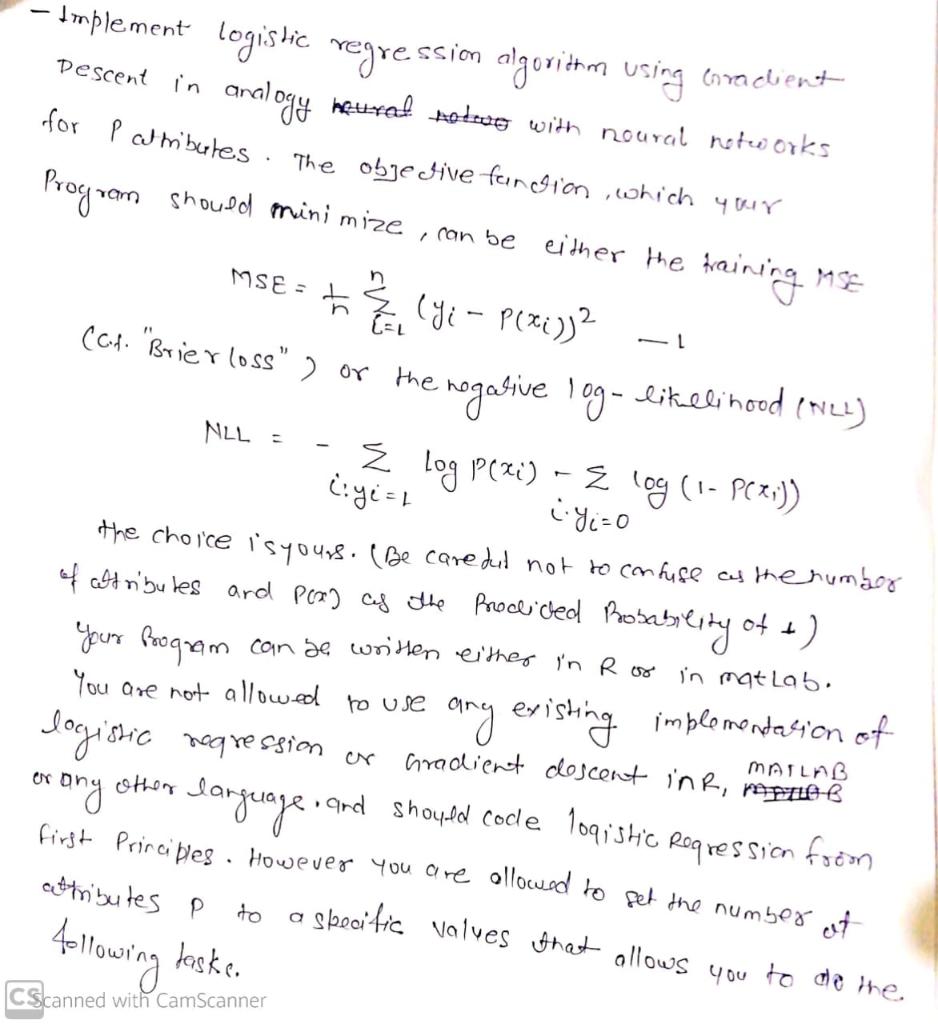 - Implement logistic regression algorithm using Gradient
Descent in analogy neural netwo with noural networks
for P attributes. The objective function, which your
Program should minimize, can be either the training MSE
MSE = 1/n n Σ i=1 (yi - P(xi))² —1
(c.f. "Brier loss") or the negative log-likelihood (NLL)
NLL = - Σ i:yi=1 log P(xi) - Σ i:yi=0 log (1- P(xi))
the choice is yours. (Be careful not to confuse as the number
of attributes and p(x) as the Prodicted Probability of 1)
Your Program can be written either in R or in matLab.
You are not allowed to use any existing implementation of
logistic regression or Gradient descent in R, MATLAB
or any other language. and should code logistic Regression from
first Principles. However you are allowed to set the number of
attributes p to a specific values that allows you to do the
following tasks.
CS Scanned with CamScanner